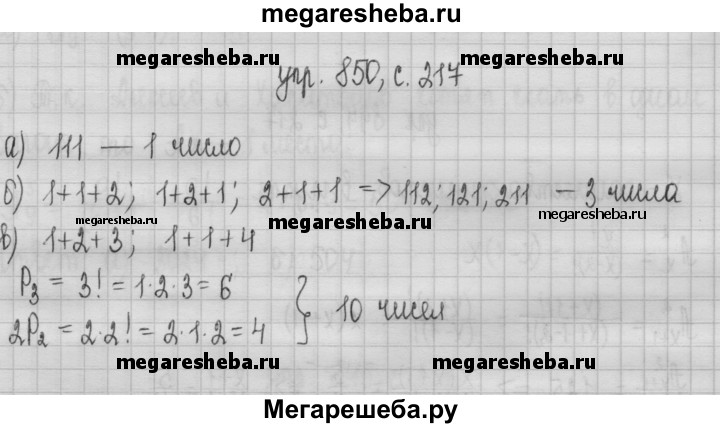 megaresheba.ru
megaresheba.ru megaresheba.ru
упр. 850, с. 217
а) 111 — 1 число
б) 1+1+2; 1+2+1; 2+1+1 => 112; 121; 211 — 3 числа
megaresheba.ru megaresheba.ru megaresheba.ru
в) 1+2+3; 1+1+4
P₃ = 3! = 1·2·3 = 6
2P₂ = 2·2! = 2·1·2 = 4 } 10 чисел
megaresheba.ru megaresheba.ru
Мегарешеба.ру